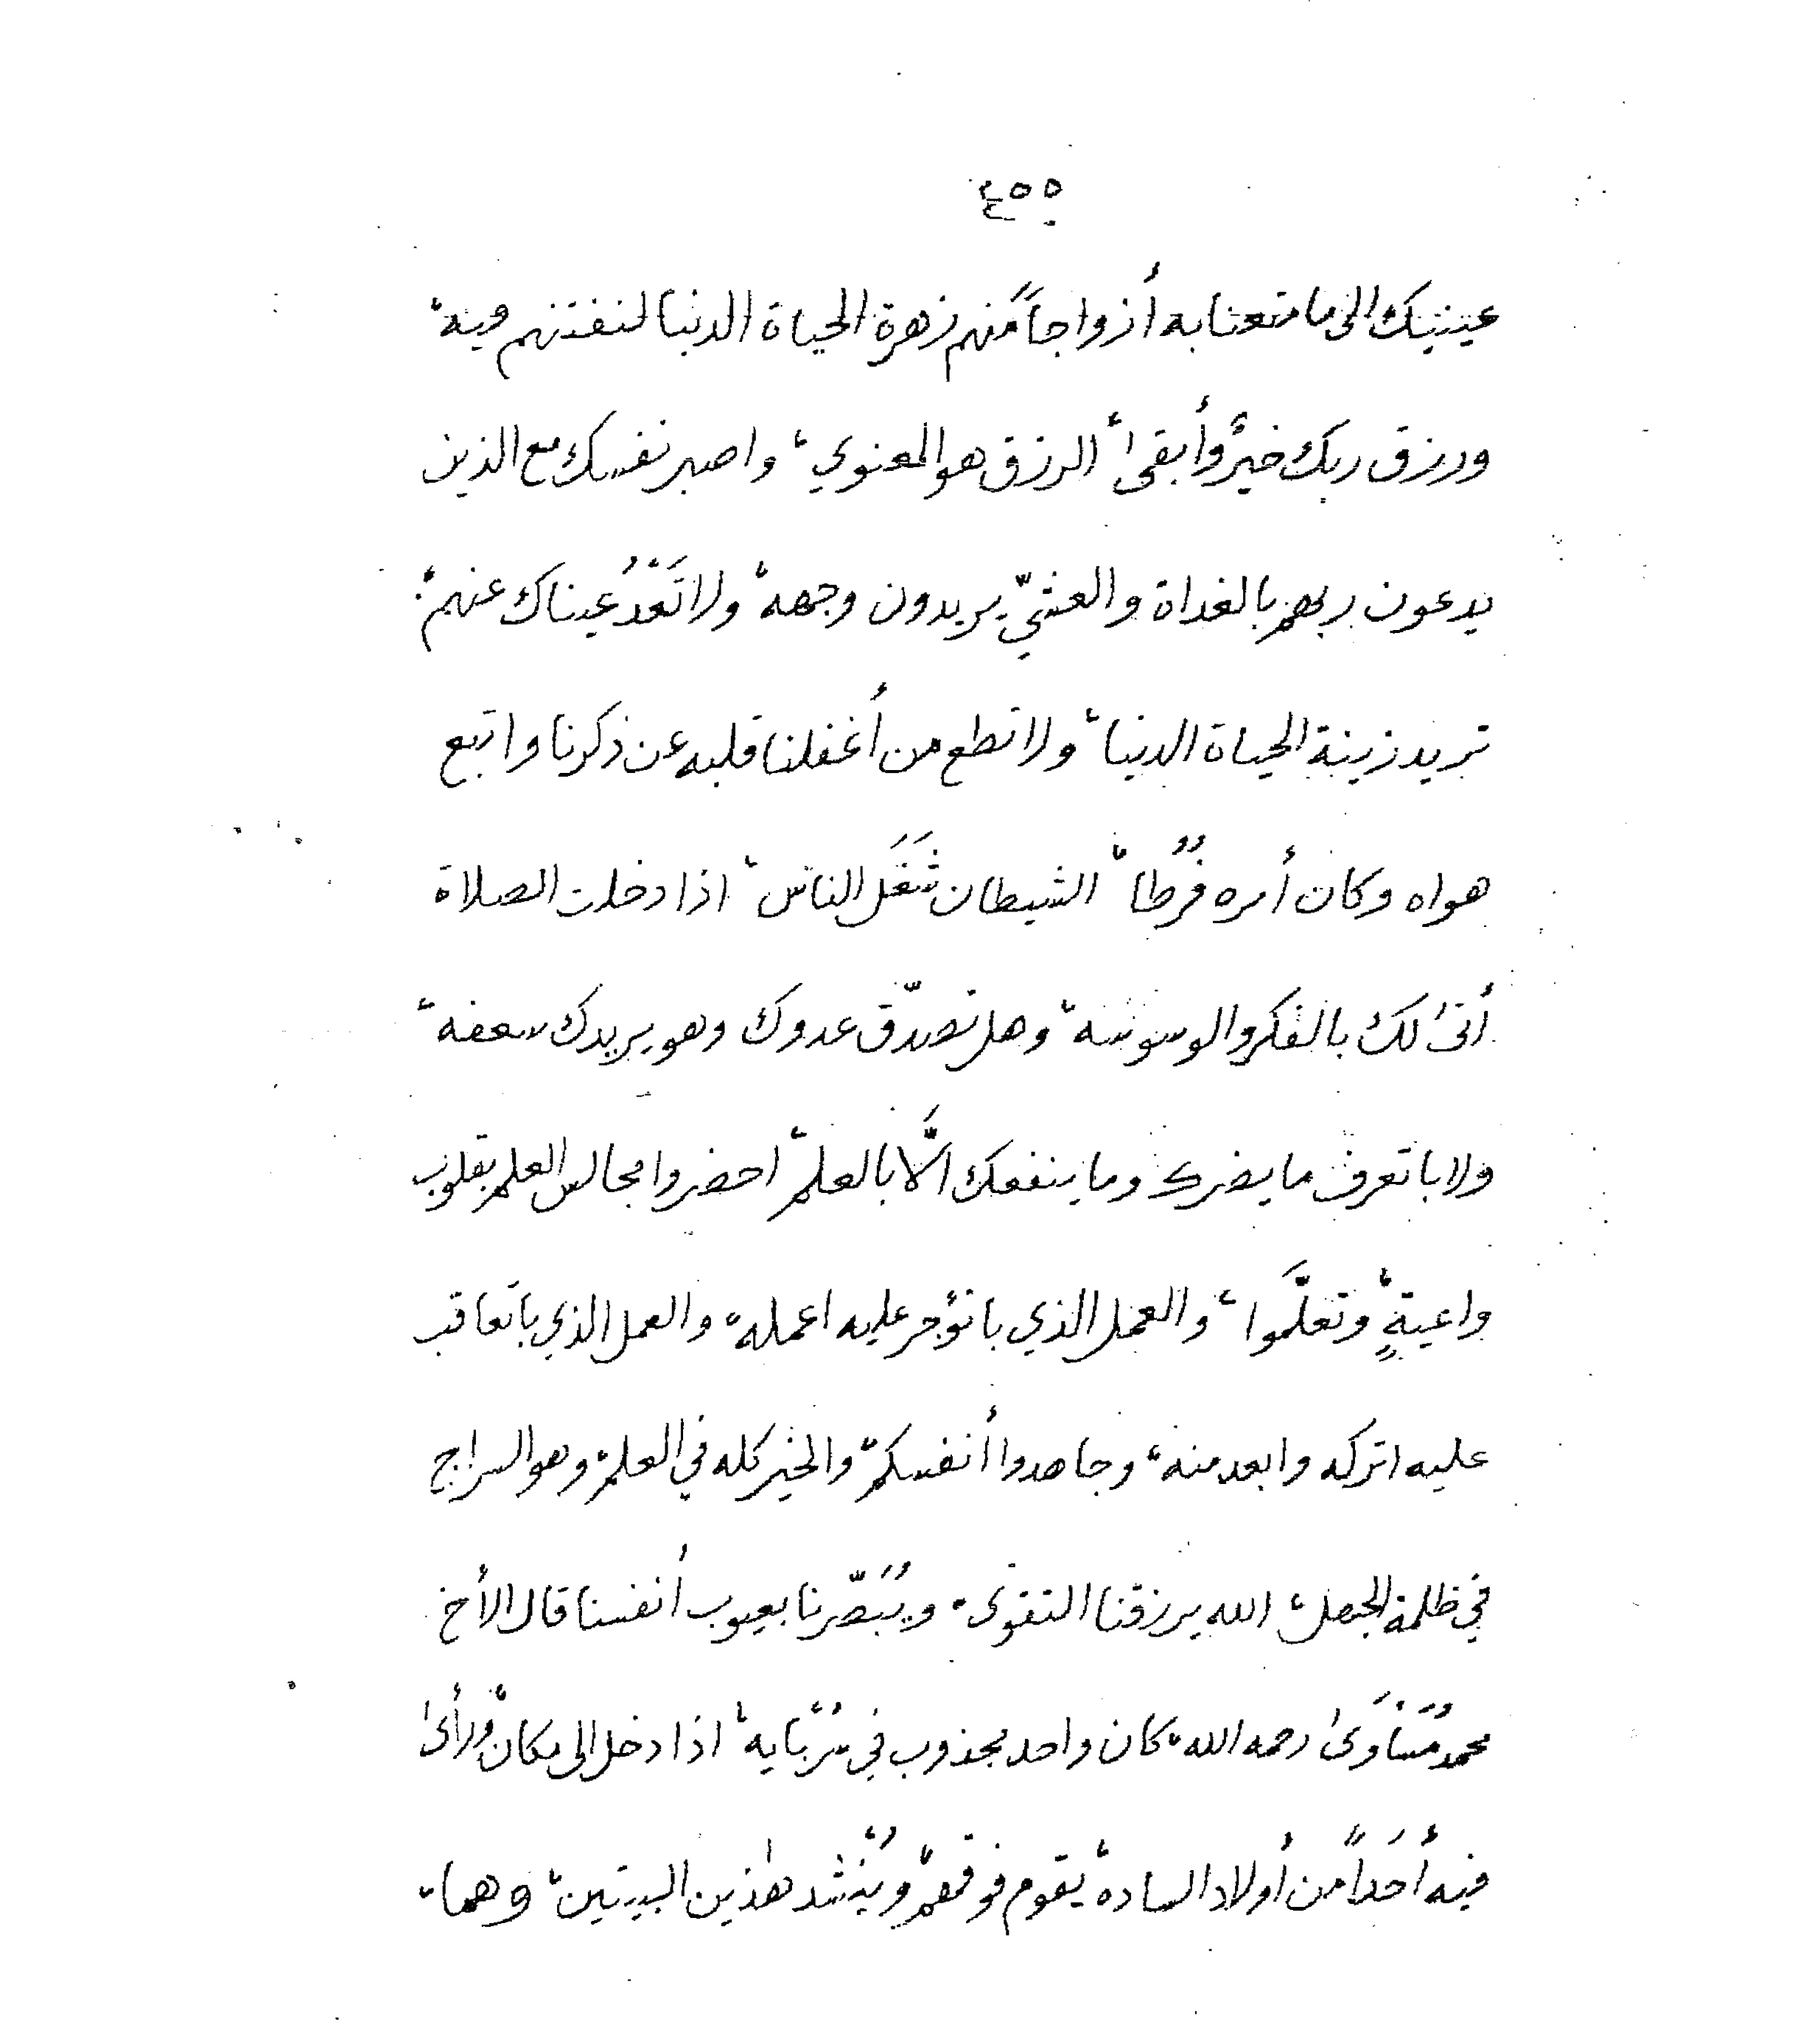 ٤٥٥
عينيك الى ما متعنا به أزواجاً منهم زهرة الحياة الدنيا لنفتنهم فيه،
ورزق ربك خيرٌ وأبقى، الرزق هو المعنوي، واصبر نفسك مع الذين
يدعون ربهم بالغداة والعشيّ يريدون وجهه، ولا تَعْدُ عيناك عنهم،
تريد زينة الحياة الدنيا، ولا تطع من أغفلنا قلبه عن ذكرنا واتبع
هواه وكان أمره فُرُطا، الشيطان شَغَل الناس، اذا دخلت الصلاة
أتى لك بالفكر والوسوسه، وهل تصدّق عدوك وهو يريدك سعفه،
ولا با تعرف ما يضرك وما ينفعك الَّا بالعلم، احضروا مجالس العلم بقلوب
واعيةٍ، وتعلَّموا، والعمل الذي با تؤجر عليه اعمله، والعمل الذي با تعاقب
عليه اتركه وابعد منه، وجاهدوا أنفسكم، والخير كله في العلم، وهو السراج
في ظلمة الجهل، الله يرزقنا التقوى، ويُبَصّرنا بعيوب أنفسنا قال الأخ
محمد رحمه الله، كان واحد مجذوب في اذا دخل الى مكان، ورأى
فيه أحَداً من أولاد الساده، يقوم فوقهم، ويُنْشد هٰذين البيتين، وهما،